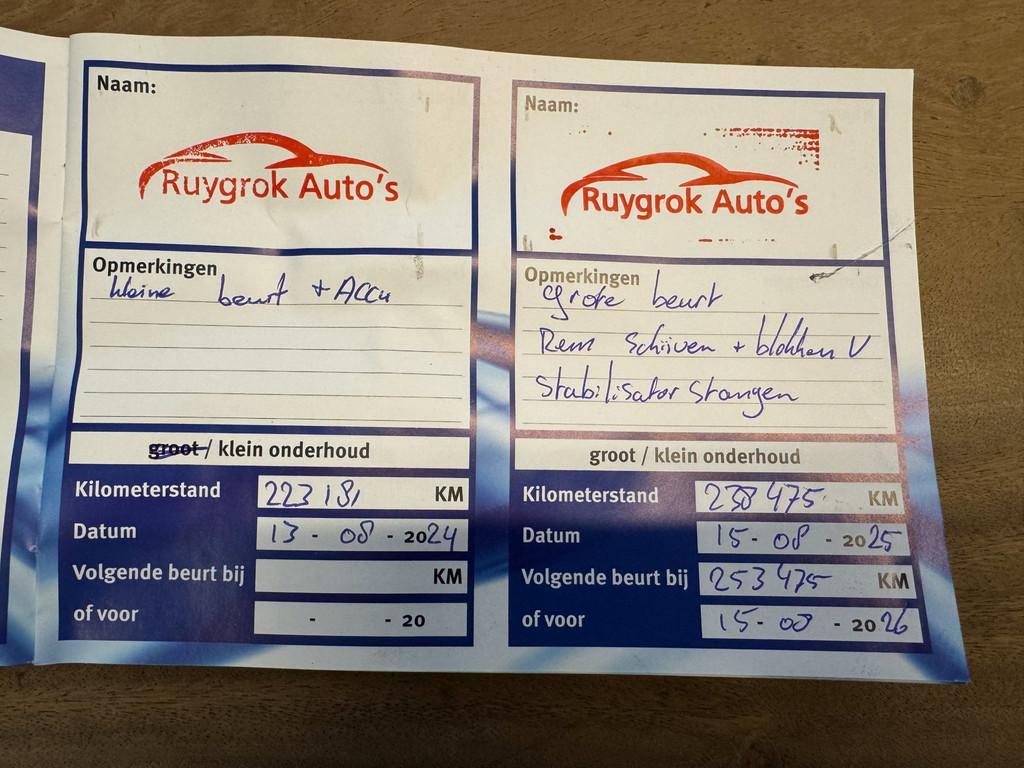 Naam:
Ruygrok Auto's
Opmerkingen
kleine beurt + Accu
groot / klein onderhoud
Kilometerstand 223 181 KM
Datum 13 - 08 - 2024
Volgende beurt bij KM
of voor - - 20
Naam:
Ruygrok Auto's
Opmerkingen
grote beurt
Rem Schijven + blokken V
Stabilisator Stangen
groot / klein onderhoud
Kilometerstand 238 475 KM
Datum 15 - 08 - 2025
Volgende beurt bij 253 475 KM
of voor 15 - 08 - 2026